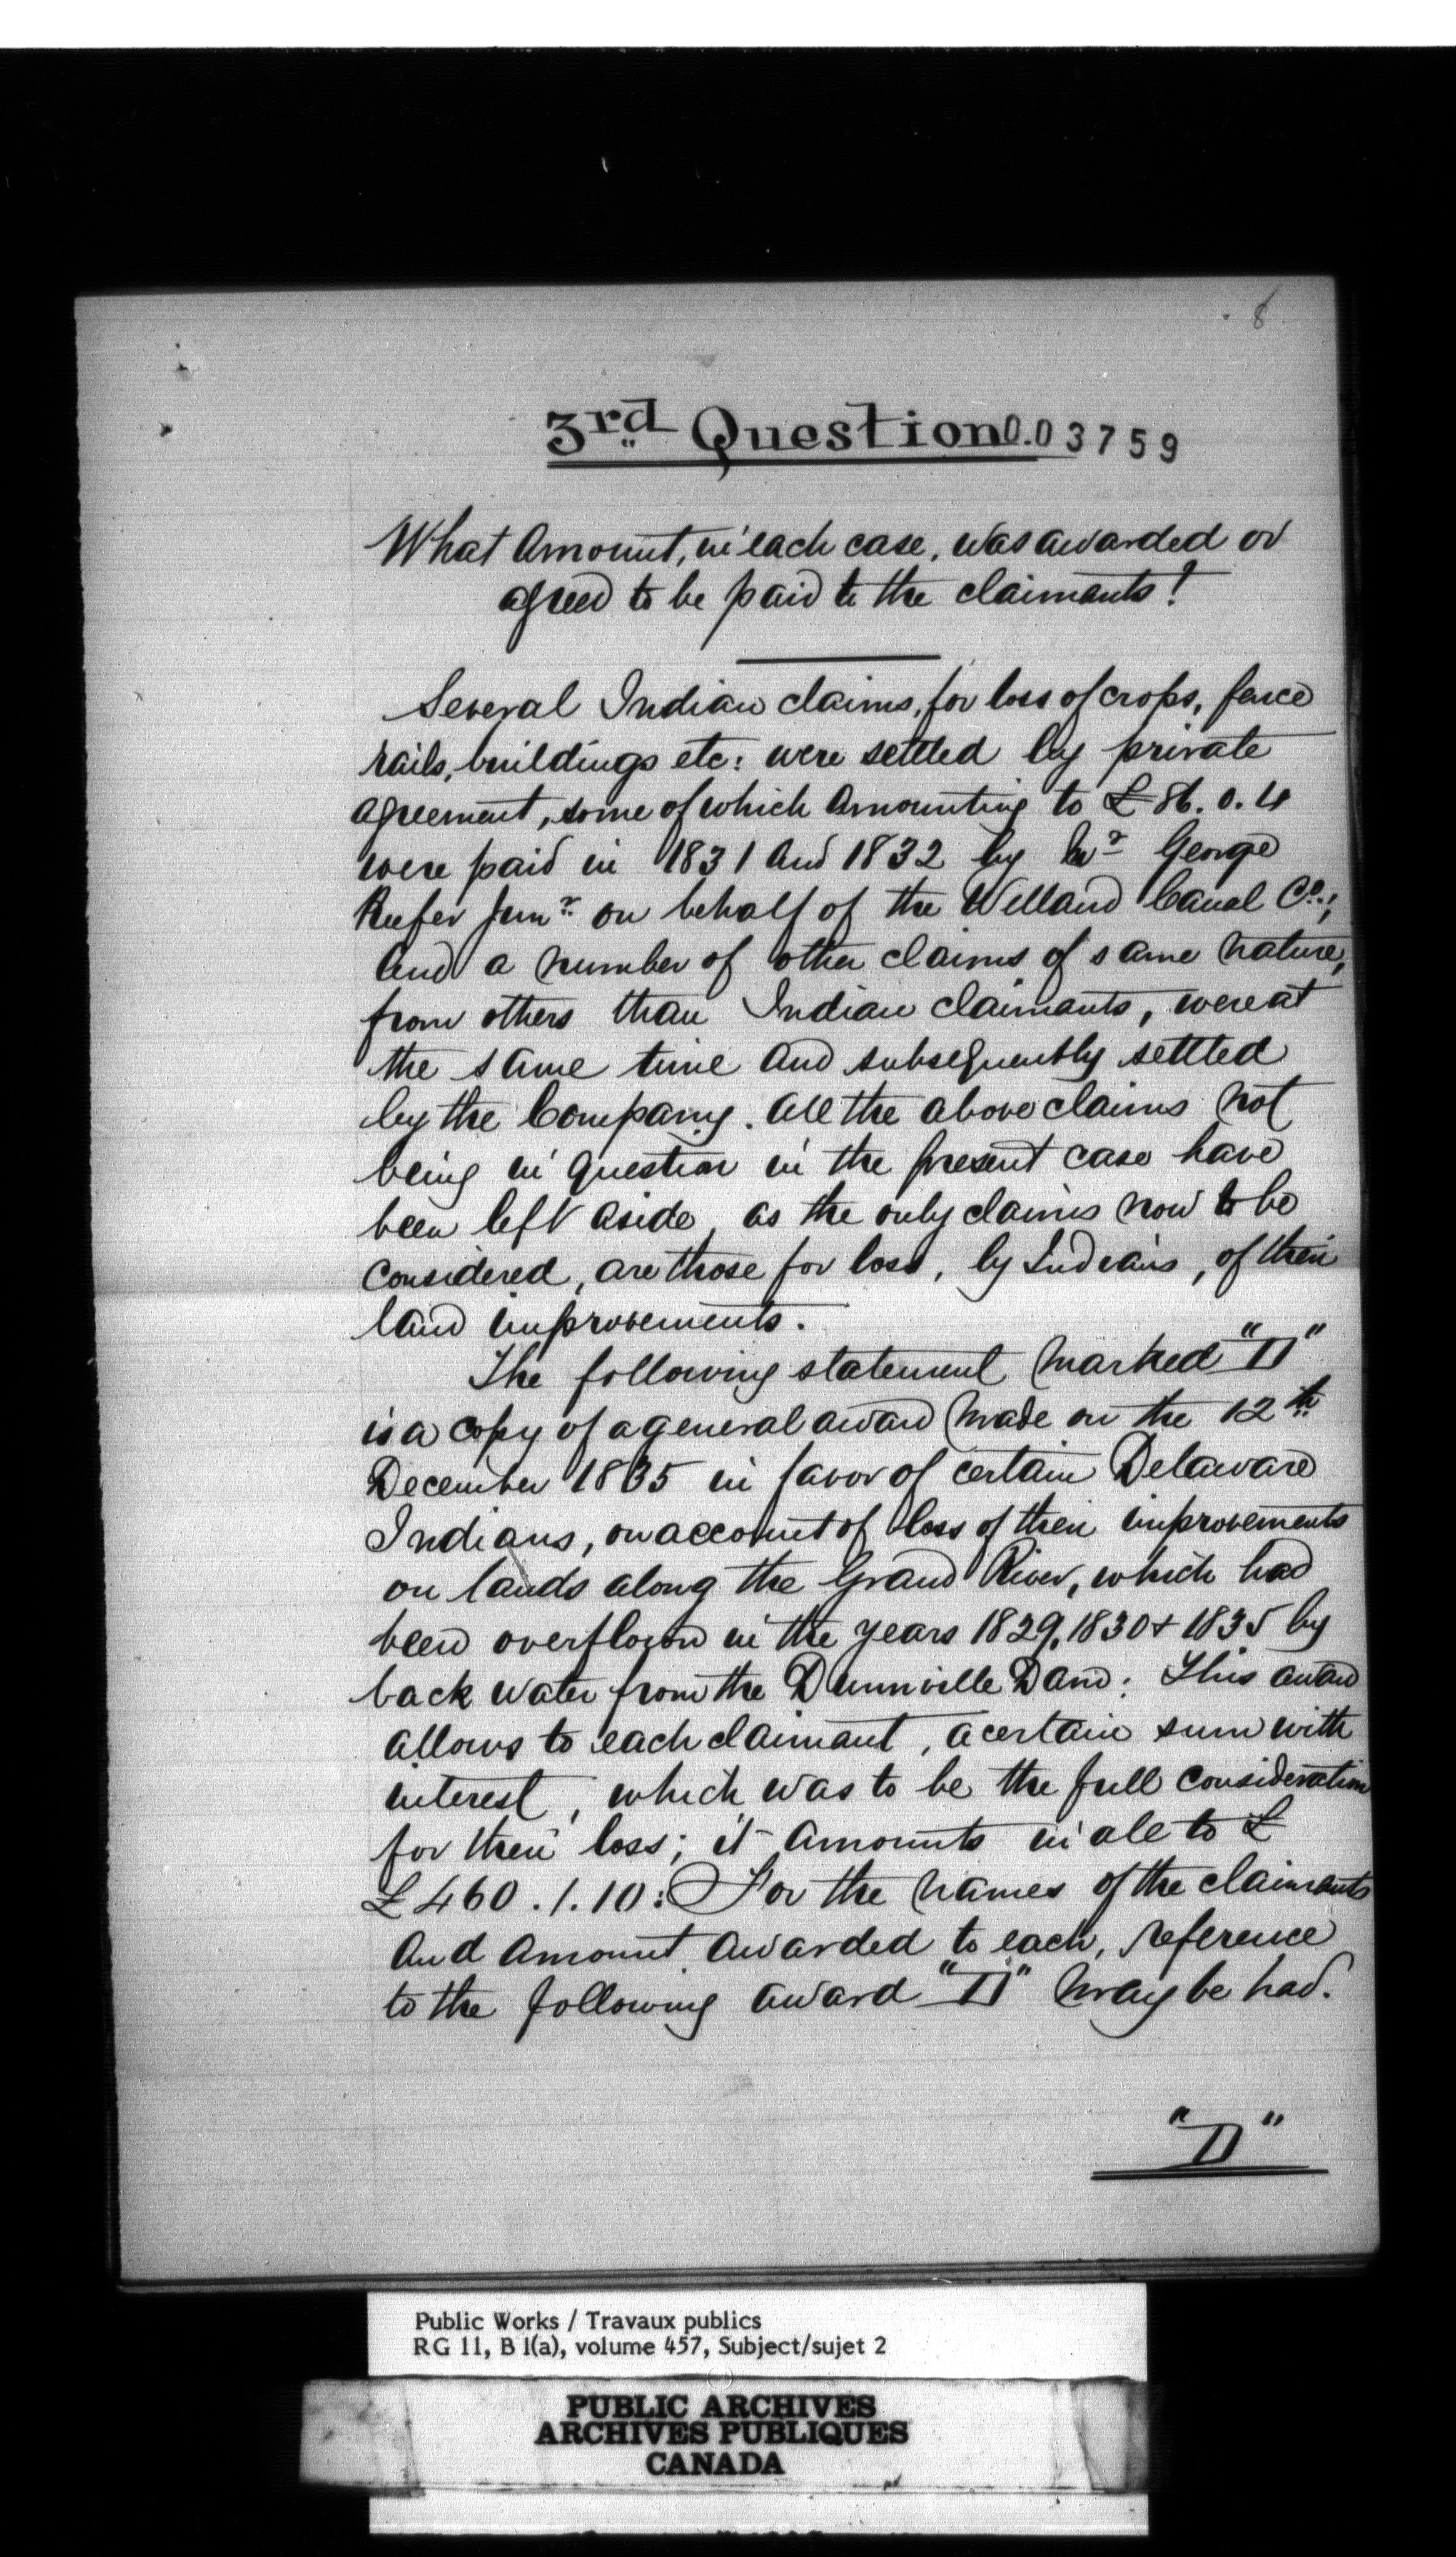 8
3rd Question 0.03759
What Amount, in each case, was awarded or
agreed to be paid to the claimants?
Several Indian claims, for loss of crops, fence
rails, buildings etc: were settled by private
agreement, some of which Amounting to £86.0.4
were paid in 1831 and 1832 by Mr George
Keefer Junr. on behalf of the Welland Canal Co.;
And a number of other claims of same nature,
from others than Indian claimants, were at
the same time and subsequently settled
by the Company. All the above claims not
being in question in the present case have
been left aside, as the only claims now to be
considered, are those for loss, by Indians, of their
land improvements.
The following statement marked "D"
is a copy of a general award made on the 12th
December 1835 in favor of certain Delaware
Indians, on account of loss of their improvements
on lands along the Grand River, which had
been overflown in the years 1829, 1830 & 1835 by
back water from the Dunnville Dam: This award
allows to each claimant, a certain sum with
interest, which was to be the full consideration
for their loss; it amounts in all to £
£460.1.10: For the names of the claimants
And Amount Awarded to each, reference
to the following award "D" may be had.
"D"
Public Works / Travaux publics
RG 11, B 1(a), volume 457, Subject/sujet 2
PUBLIC ARCHIVES
ARCHIVES PUBLIQUES
CANADA